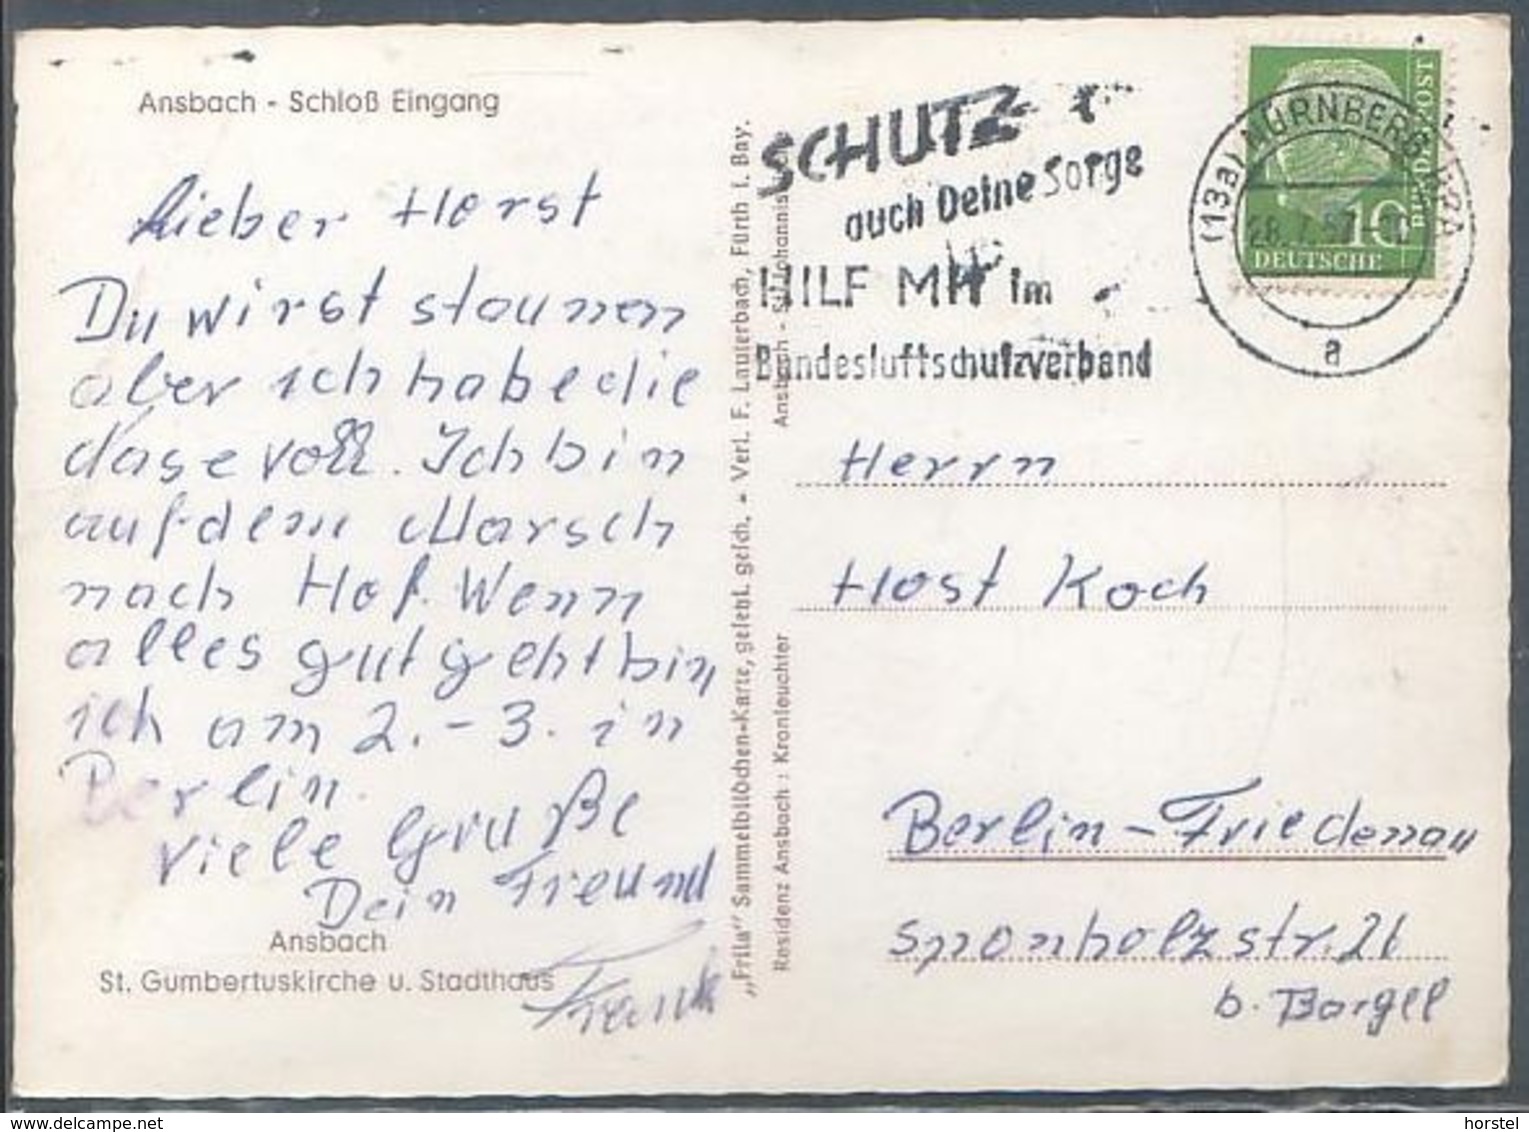 Ansbach - Schloß Eingang
Lieber Horst
Du wirst staunen
aber ich habe die
dase voll. Ich bin
auf dem Marsch
nach Hof. Wenn
alles gut geht bin
ich am 2. - 3. in
Berlin.
viele Gruße
Dein Freund
Frank
Ansbach
St. Gumbertuskirche u. Stadthaus
„Frila" Sammelbildchen-Karte, gesetzl. gesch. - Verl. F. Lauterbach, Fürth i. Bay.
Residenz Ansbach : Kronleuchter
Ansbach - St. Johannis
SCHUTZ
auch Deine Sorge
HILF MIT im
Bundesluftschutzverband
(13a) NÜRNBERG
28. 7. 57
a
DEUTSCHE
BUNDESPOST
10
Herrn
Host Koch
Berlin-Friedenau
Sponholzstr. 26
b. Borgel
delcampe.net
horstel